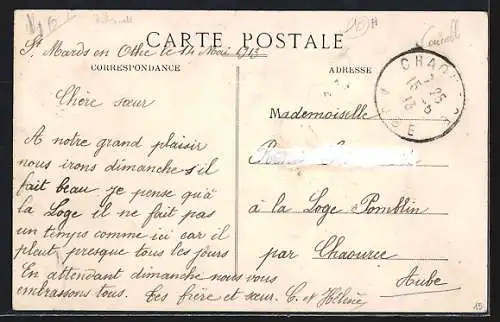 CARTE POSTALE
St Mards en Othe le 14 Mai 1913
CORRESPONDANCE
ADRESSE
Chère sœur
A notre grand plaisir
nous irons dimanche s'il
fait beau je pense qu'à
la Loge il ne fait pas
un temps comme ici car il
pleut presque tous les jours
En attendant dimanche nous vous
embrassons tous. Tes frère et sœur. C. et Hélène
Mademoiselle
à la Loge Pomblin
par Chaource
Aube